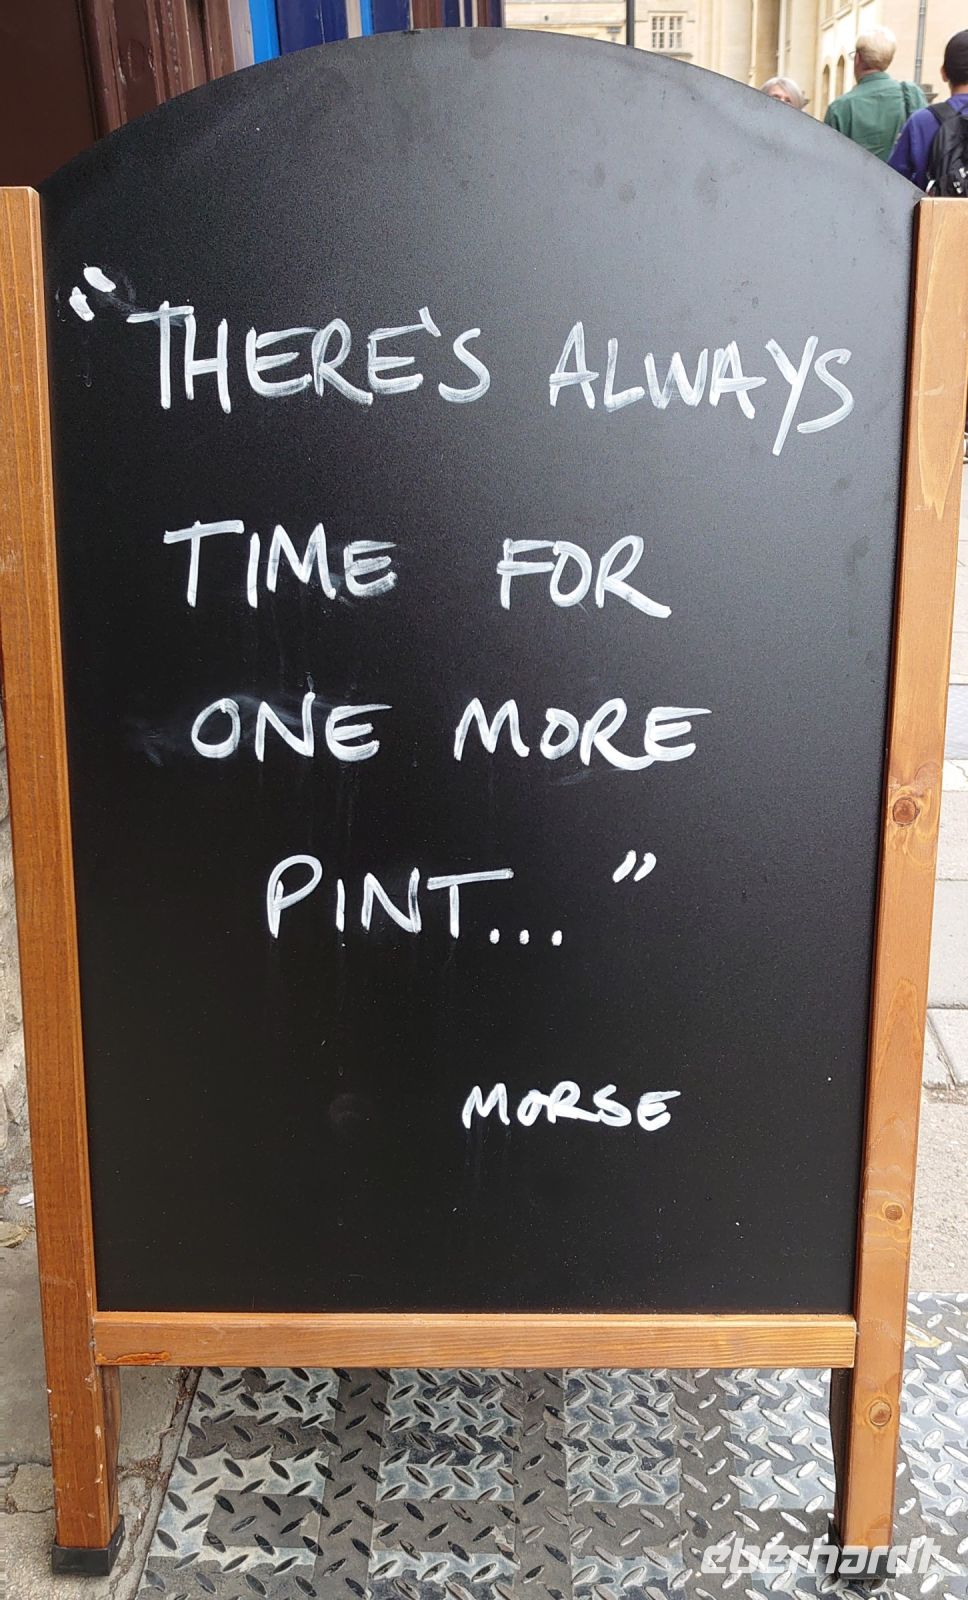 "THERE'S ALWAYS
TIME FOR
ONE MORE
PINT..."
MORSE
eberhardt